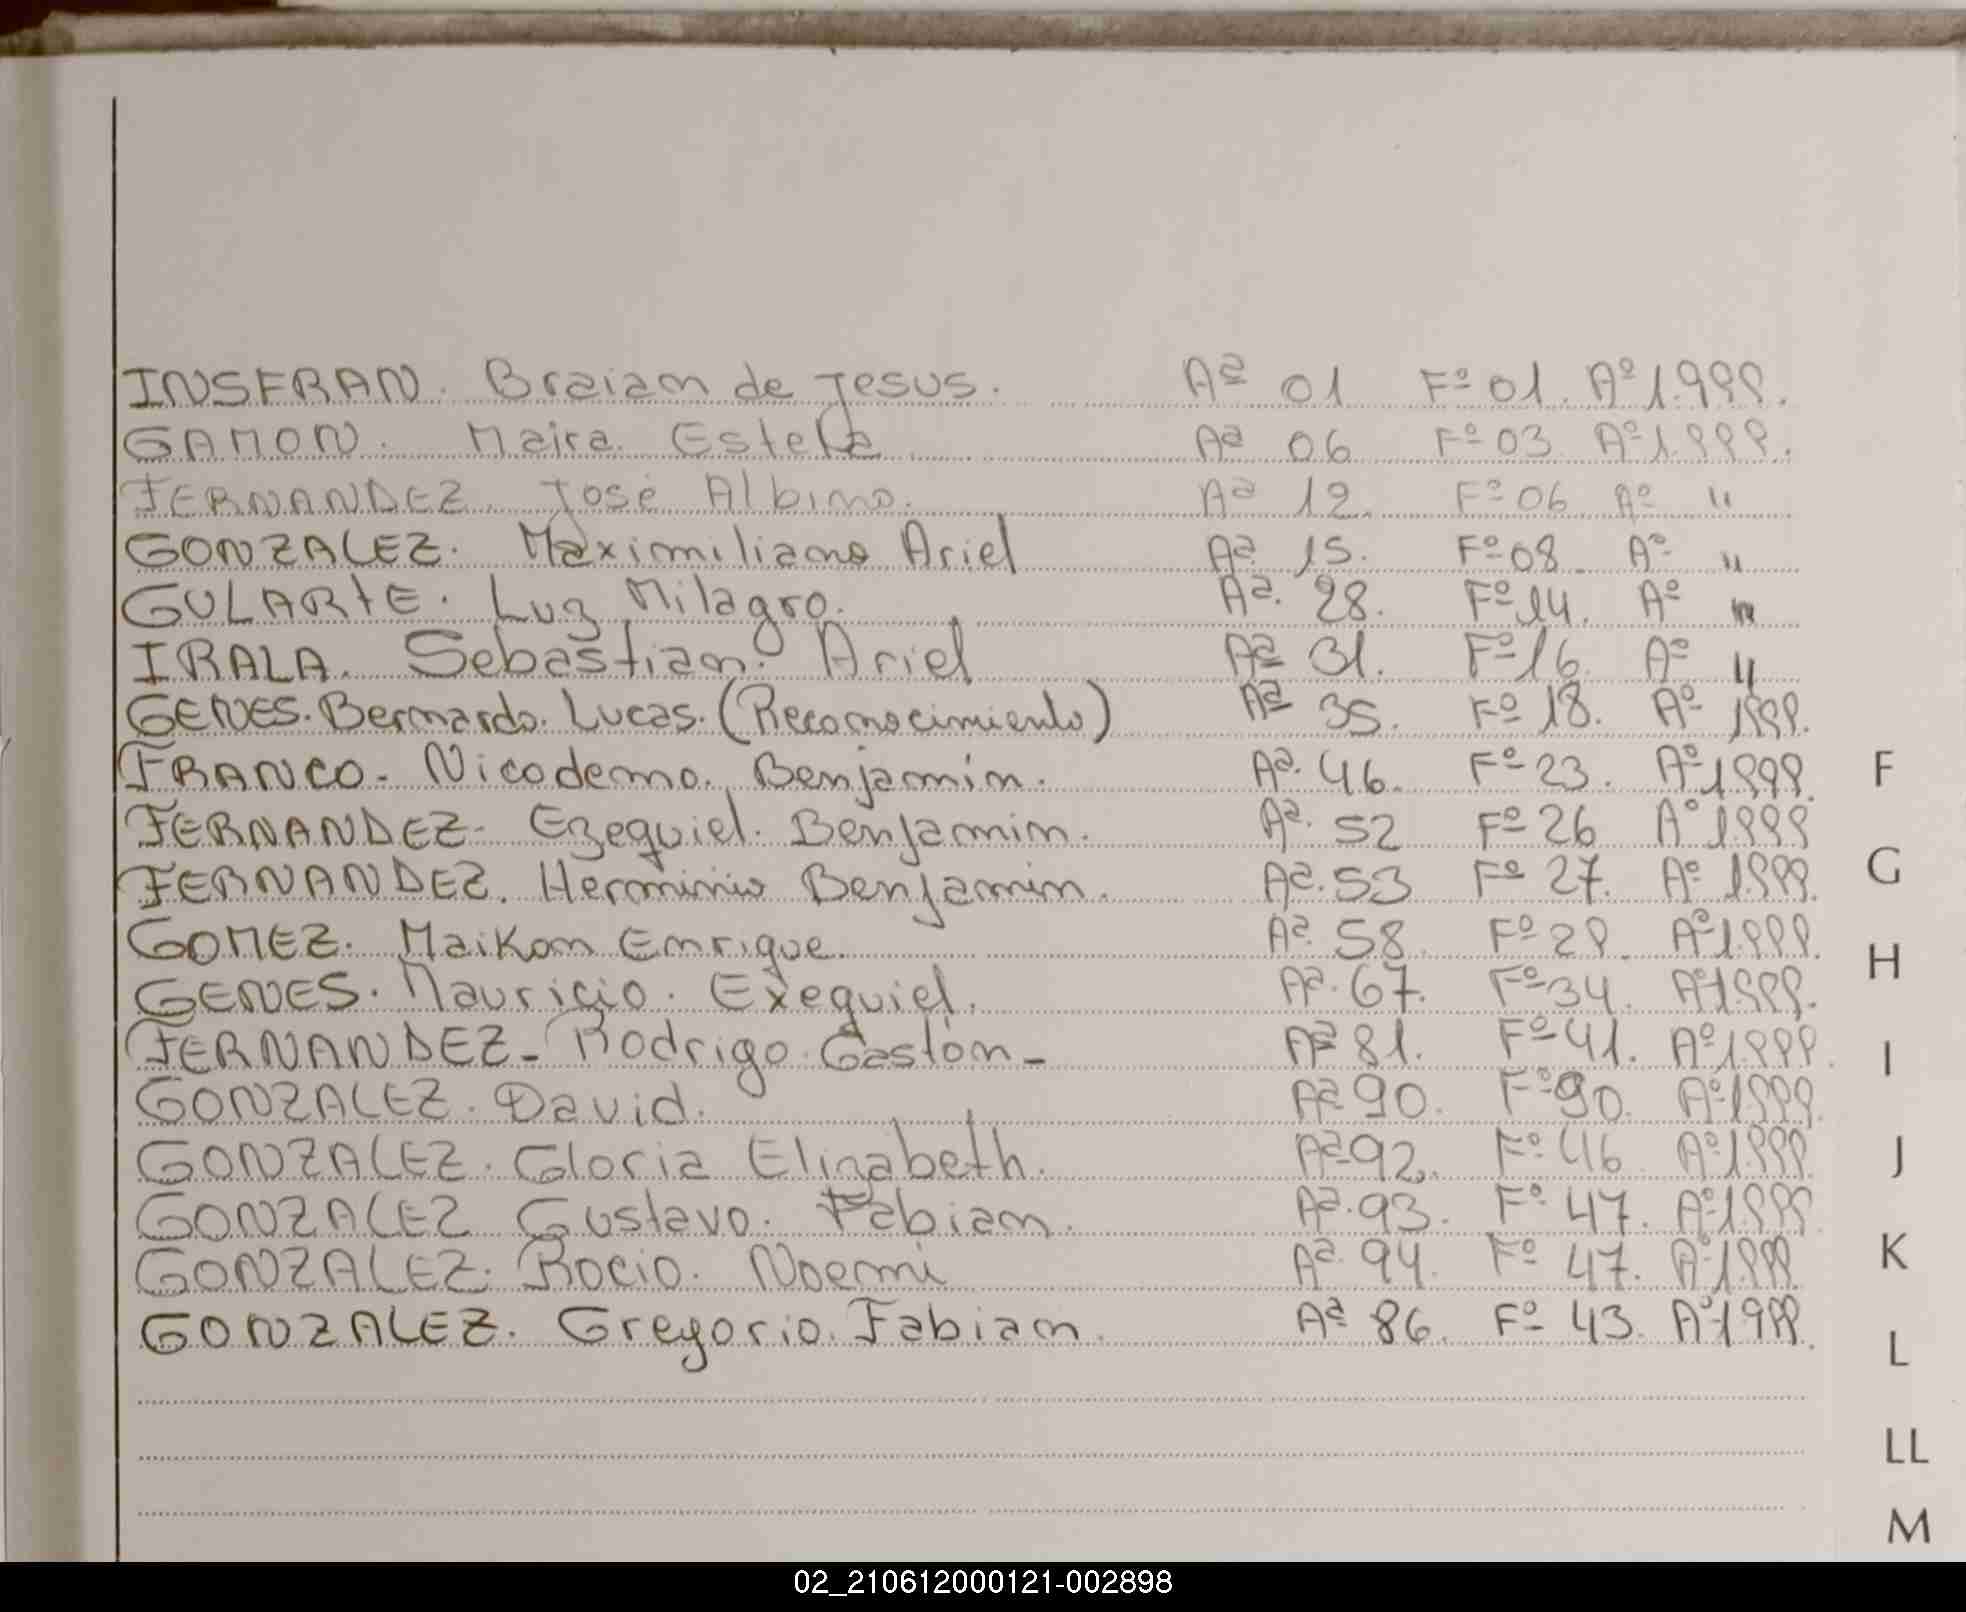 INSFRAN. Braian de Jesus. Aª 01 Fº 01. Aº 1.999.
GAMON. Maira. Estela Aª 06 Fº 03 Aº 1.999.
FERNANDEZ. José Albino. Aª 12. Fº 06 Aº "
GONZALEZ. Maximiliano Ariel Aª 15. Fº 08. Aº "
GULARTE. Luz Milagro. Aª. 28. Fº 14. Aº "
IRALA. Sebastian. Ariel Aª 31. Fº 16. Aº "
GENES. Bernardo. Lucas. (Reconocimiento) Aª 35. Fº 18. Aº 1999.
FRANCO. Nicodemo. Benjamín. Aª. 46. Fº 23. Aº 1999. F
FERNANDEZ- Ezequiel. Benjamin. Aª. 52 Fº 26 Aº 1.999
FERNANDEZ. Herminio Benjamin. Aª. 53 Fº 27. Aº 1.999. G
GOMEZ. Maikon Enrique. Aª. 58. Fº 29. Aº 1.999. H
GENES. Mauricio. Exequiel. Aª. 67. Fº 34. Aº 1999.
FERNANDEZ- Rodrigo. Gastón- Aª 81. Fº 41. Aº 1.999. I
GONZALEZ. David. Aª 90. Fº 90. Aº 1999.
GONZALEZ. Gloria Elizabeth. Aª 92. Fº 46 Aº 1999. J
GONZALEZ Gustavo. Fabian. Aª. 93. Fº 47. Aº 1.999
GONZALEZ. Rocio. Noemi Aª. 94. Fº 47. Aº 1.999. K
GONZALEZ. Gregorio. Fabian. Aª 86. Fº 43. Aº 1999. L
LL
M
02_210612000121-002898